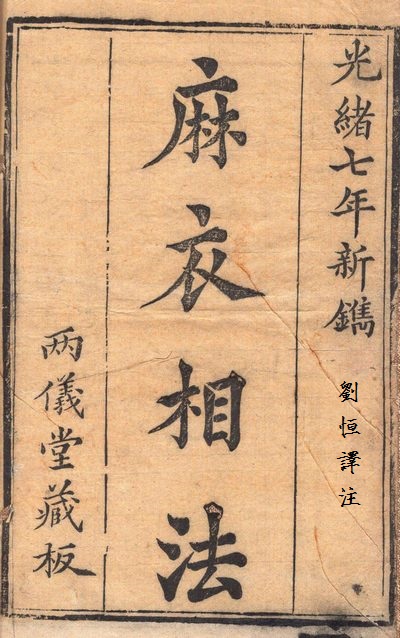 光緒七年新鐫
劉恒譯注
麻衣相法
兩儀堂藏板